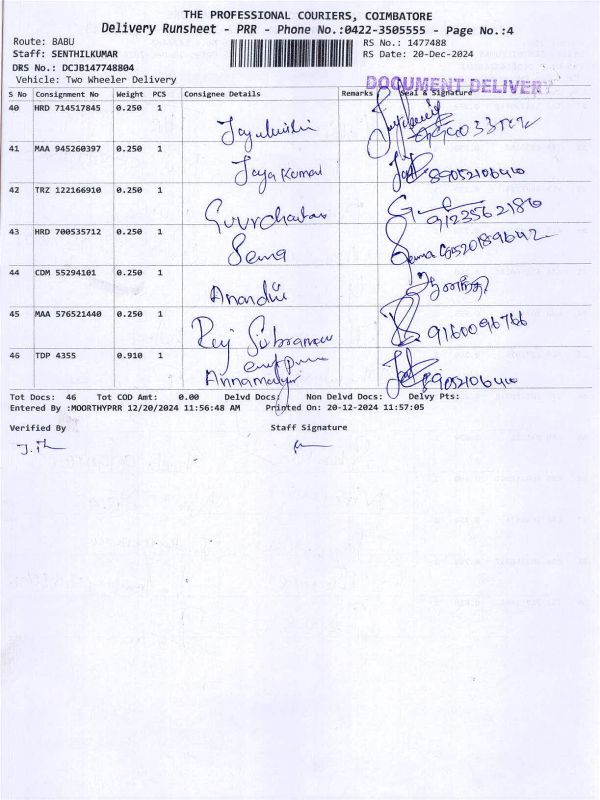 THE PROFESSIONAL COURIERS, COIMBATORE
Delivery Runsheet - PRR - Phone No.:0422-3505555 - Page No.:4
Route: BABU
RS No.: 1477488
Staff: SENTHILKUMAR
RS Date: 20-Dec-2024
DRS No.: DCJB147748804
Vehicle: Two Wheeler Delivery
DOCUMENT DELIVERY
S No Consignment No Weight PCS Consignee Details Remarks Seal & Signature
40 HRD 714517845 0.250 1
41 MAA 945260397 0.250 1
Jaya Kumar 8905210640
42 TRZ 122166910 0.250 1
9123562186
43 HRD 700535712 0.250 1
Sema Sema
44 CDM 55294101 0.250 1
Anandhi
45 MAA 576521440 0.250 1
Raj 9160096766
46 TDP 4355 0.910 1
8905210640
Tot Docs: 46 Tot COD Amt: 0.00 Delvd Docs: Non Delvd Docs: Delvy Pts:
Entered By :MOORTHYPRR 12/20/2024 11:56:48 AM Printed On: 20-12-2024 11:57:05
Verified By Staff Signature